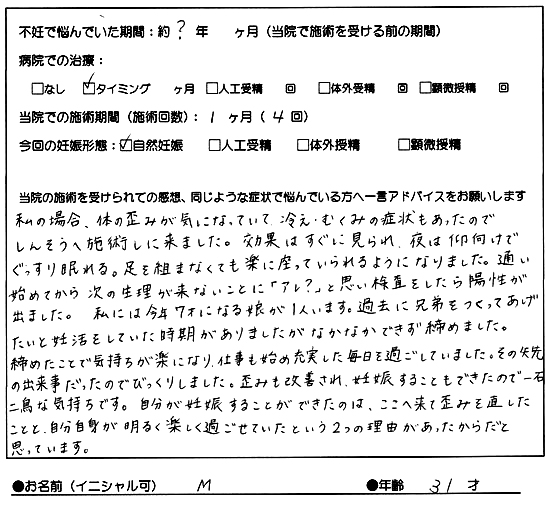 不妊で悩んでいた期間：約 ? 年　　ヶ月（当院で施術を受ける前の期間）
病院での治療：
□なし ☑タイミング　ヶ月 □人工受精　回 □体外受精　回 □顕微授精　回
当院での施術期間（施術回数）：1 ヶ月（ 4 回）
今回の妊娠形態：☑自然妊娠 □人工受精 □体外授精 □顕微授精
当院の施術を受けられての感想、同じような症状で悩んでいる方へ一言アドバイスをお願いします
私の場合、体の歪みが気になっていて、冷え・むくみの症状もあったので
しんそうへ施術しに来ました。効果はすぐに見られ、夜は仰向けで
ぐっすり眠れる。足を組まなくても楽に座っていられるようになりました。通い
始めてから 次の生理が来ないことに「アレ？」と思い検査をしたら陽性が
出ました。 私には今年7才になる娘が1人います。過去に兄弟をつくってあげ
たいと妊活をしていた時期がありましたがなかなかできず締めました。
締めたことで気持ちが楽になり、仕事も始め充実した毎日を過ごしていました。その矢先
の出来事だったのでびっくりしました。歪みも改善され、妊娠することもできたので一石
二鳥な気持ちです。自分が妊娠することができたのは、ここへ来て歪みを直した
ことと、自分自身が明るく楽しく過ごせていたという2つの理由があったからだと
思っています。
●お名前（イニシャル可） M ●年齢 31 才